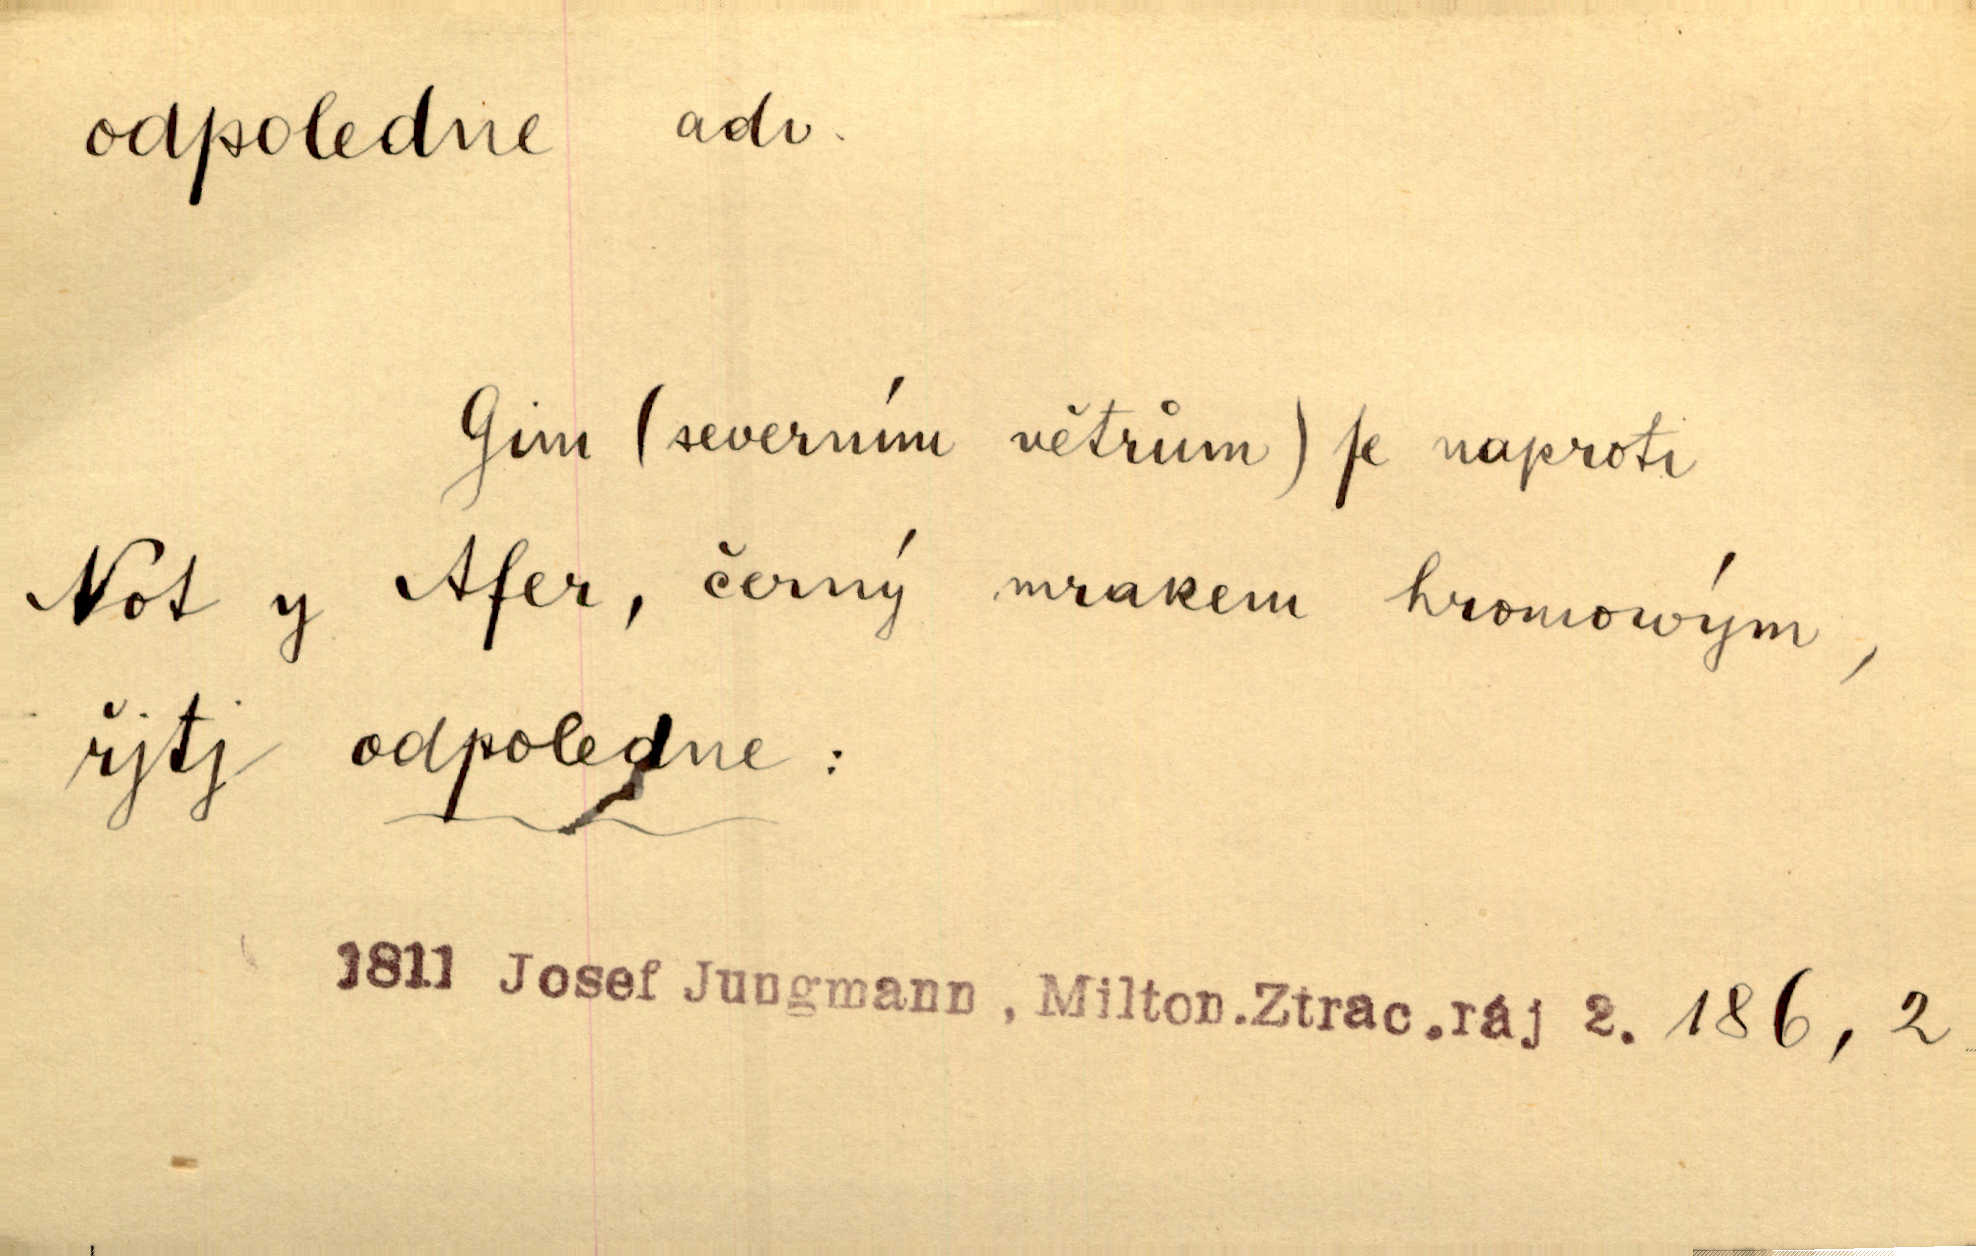 odpoledne adv.
Gim (severním větrům) se naproti
Not y Afer, černý mrakem hromowým,
řjtj odpoledne:
1811 Josef Jungmann, Milton.Ztrac.ráj 2. 186, 2